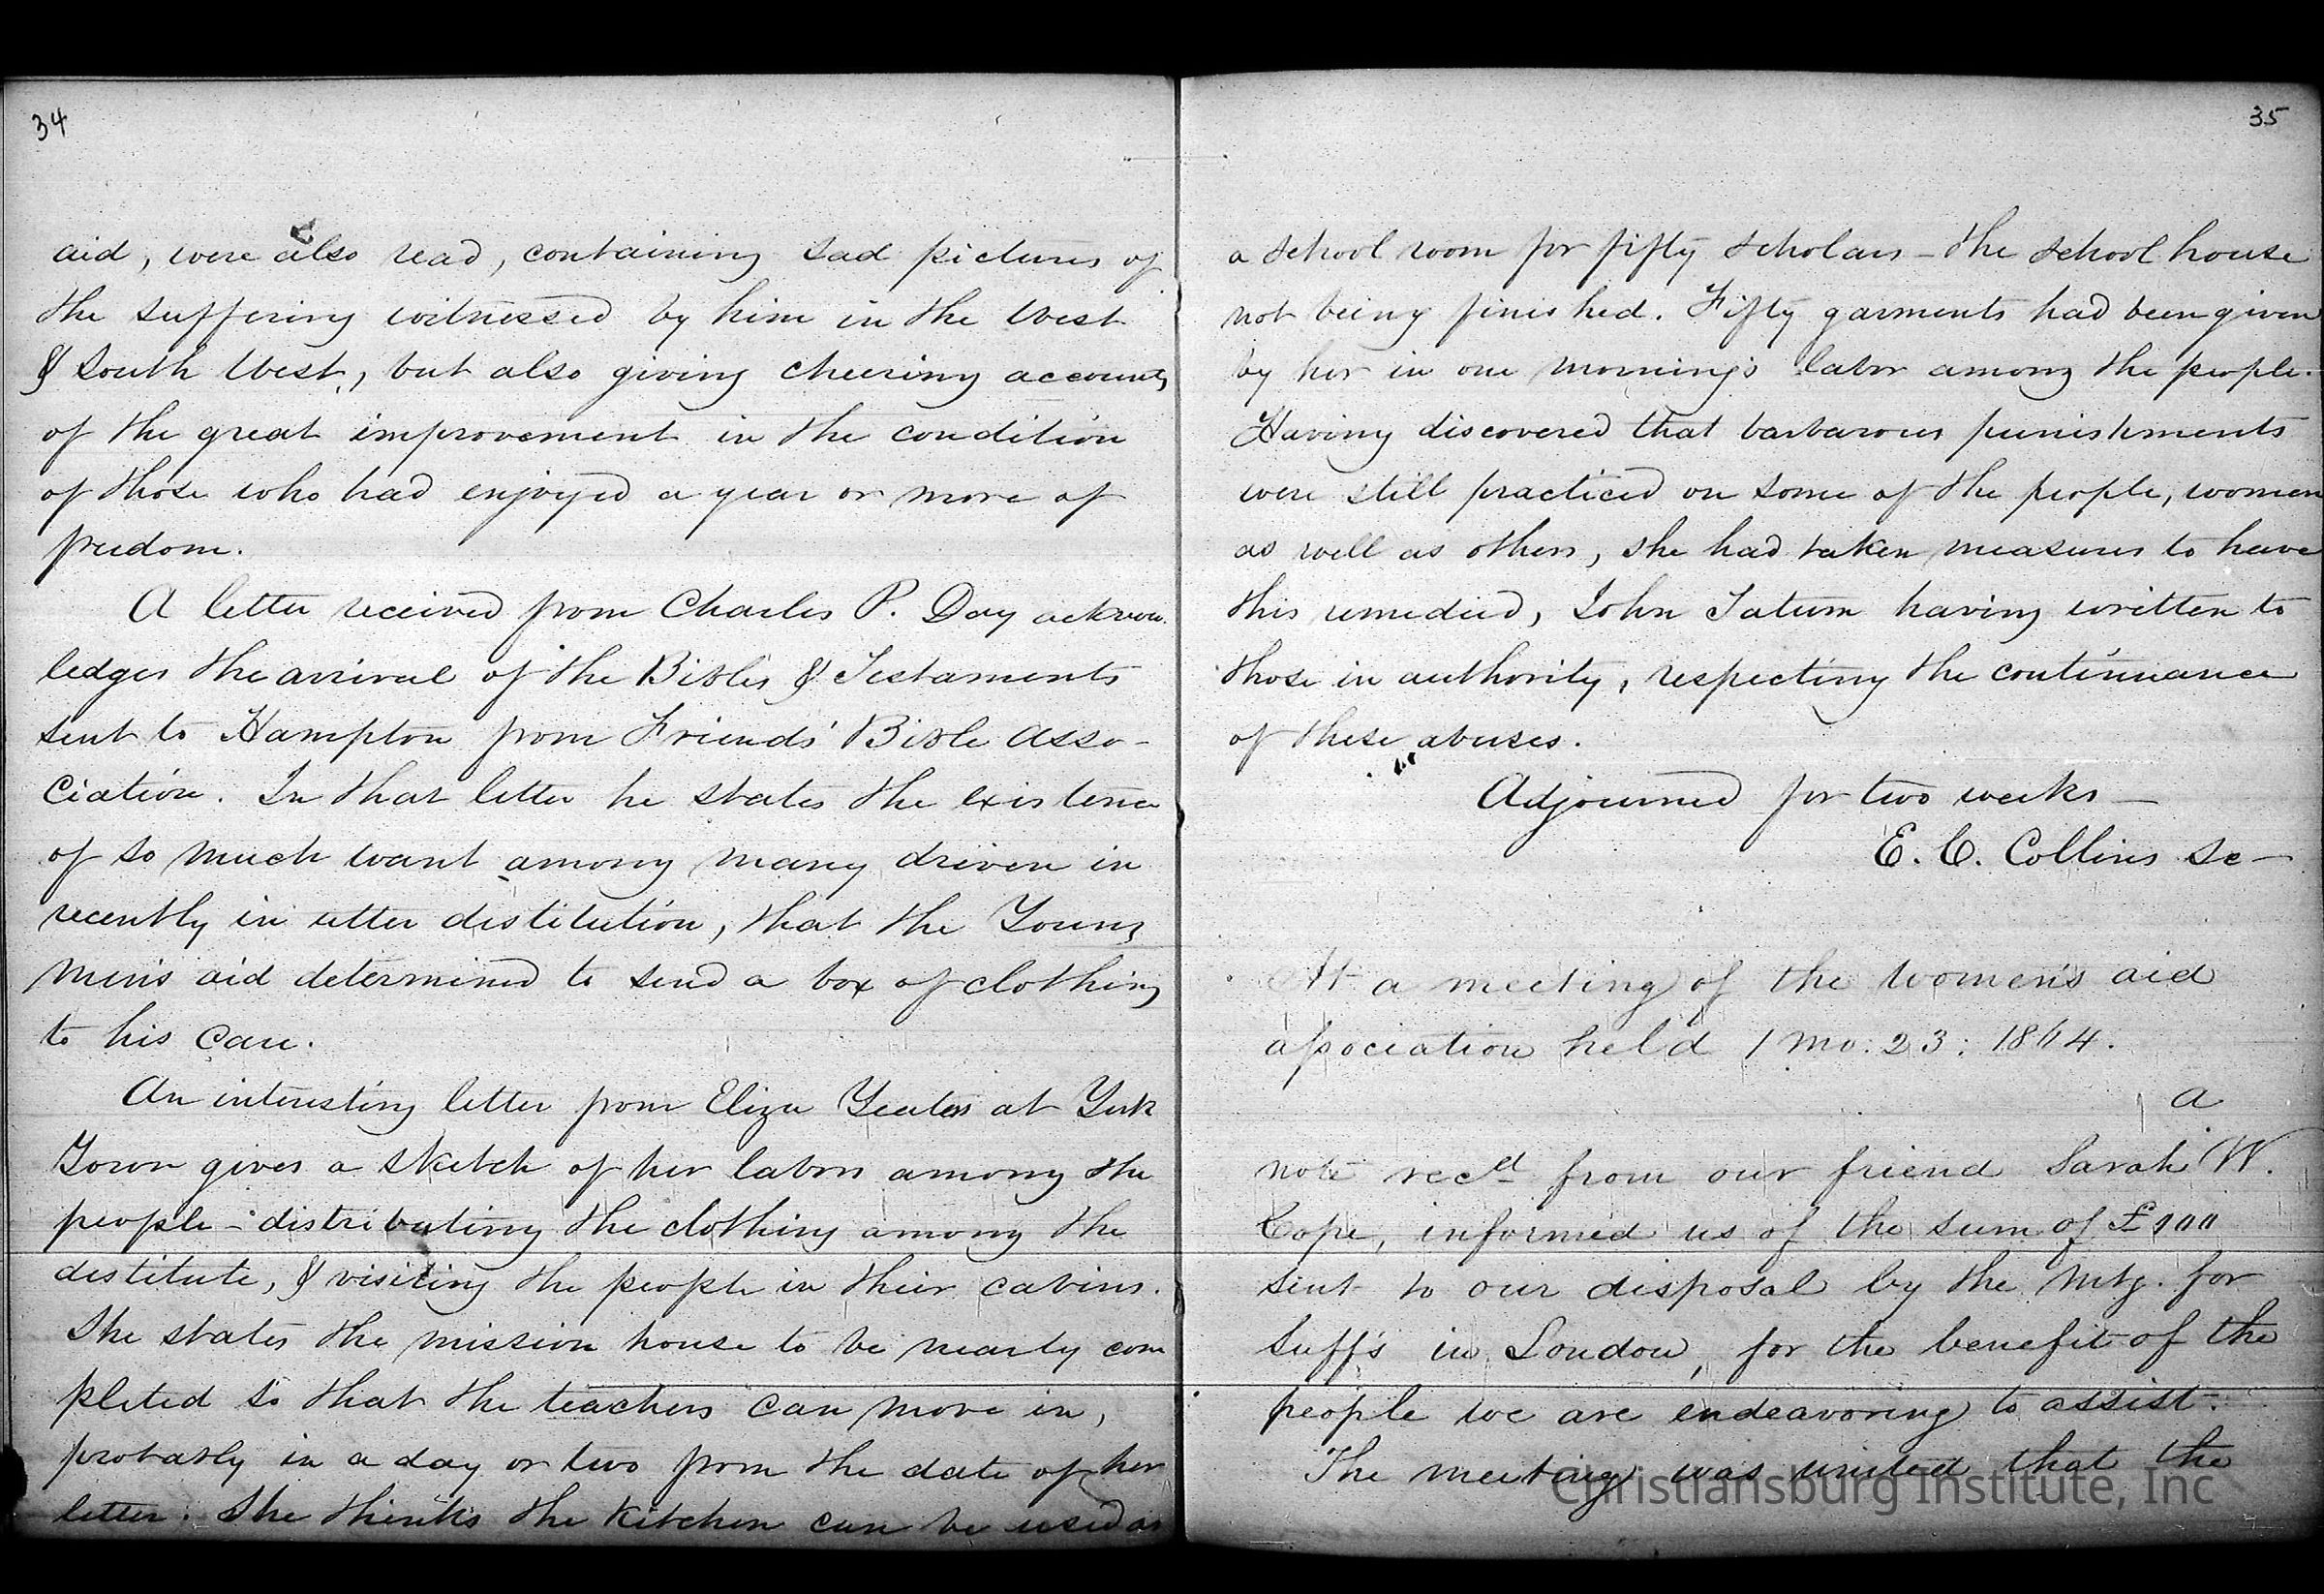 34
aid, were also read, containing sad pictures of
the suffering witnessed by him in the West
& South West, but also giving cheering accounts
of the great improvement in the condition
of those who had enjoyed a year or more of
freedom.
A letter received from Charles P. Day acknow
ledges the arrival of the Bibles & Testaments
sent to Hampton from Friends' Bible Asso-
ciation. In that letter he states the existence
of so much want among many driven in
recently in utter distitution, that the Young
men's aid determined to send a box of clothing
to his care.
An interesting letter from Eliza Yeates at York
Town gives a sketch of her labors among the
people - distributing the clothing among the
destitute, & visiting the people in their cabins.
She states the mission house to be nearly com
pleted so that the teachers can move in,
probably in a day or two from the date of her
letter. She thinks the kitchen can be used as
35
a school room for fifty scholars - the school house
not being finished. Fifty garments had been given
by her in one morning's labor among the people.
Having discovered that barbarous punishments
were still practiced on some of the people, women
as well as others, she had taken measures to have
this remedied, John Tatum having written to
those in authority, respecting the continuance
of these abuses.
Adjourned for two weeks —
E. C. Collins Sc —
At a meeting of the women's aid
association held 1 mo: 23: 1864.
a
note recd from our friend Sarah W.
Cope, informed us of the sum of £100
sent to our disposal by the Mtg. for
Suff's in London, for the benefit of the
people we are endeavoring to assist.
The meeting was united that the
Christiansburg Institute, Inc